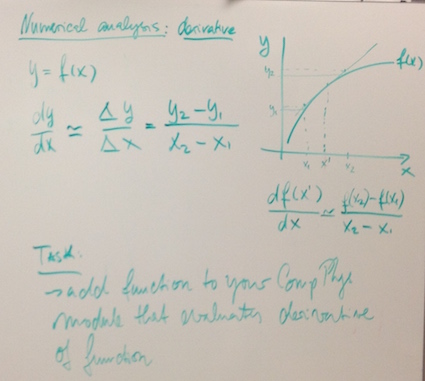 Numerical analysis: derivative
y = f(x)
dy/dx ≃ Δy/Δx = y₂-y₁/x₂-x₁
y
y₂
y₁
f(x)
x₁ x' x₂
x
df(x')/dx ≃ f(x₂)-f(x₁)/x₂-x₁
TASK:
→ add function to your CompPhys
module that evaluates derivative
of function